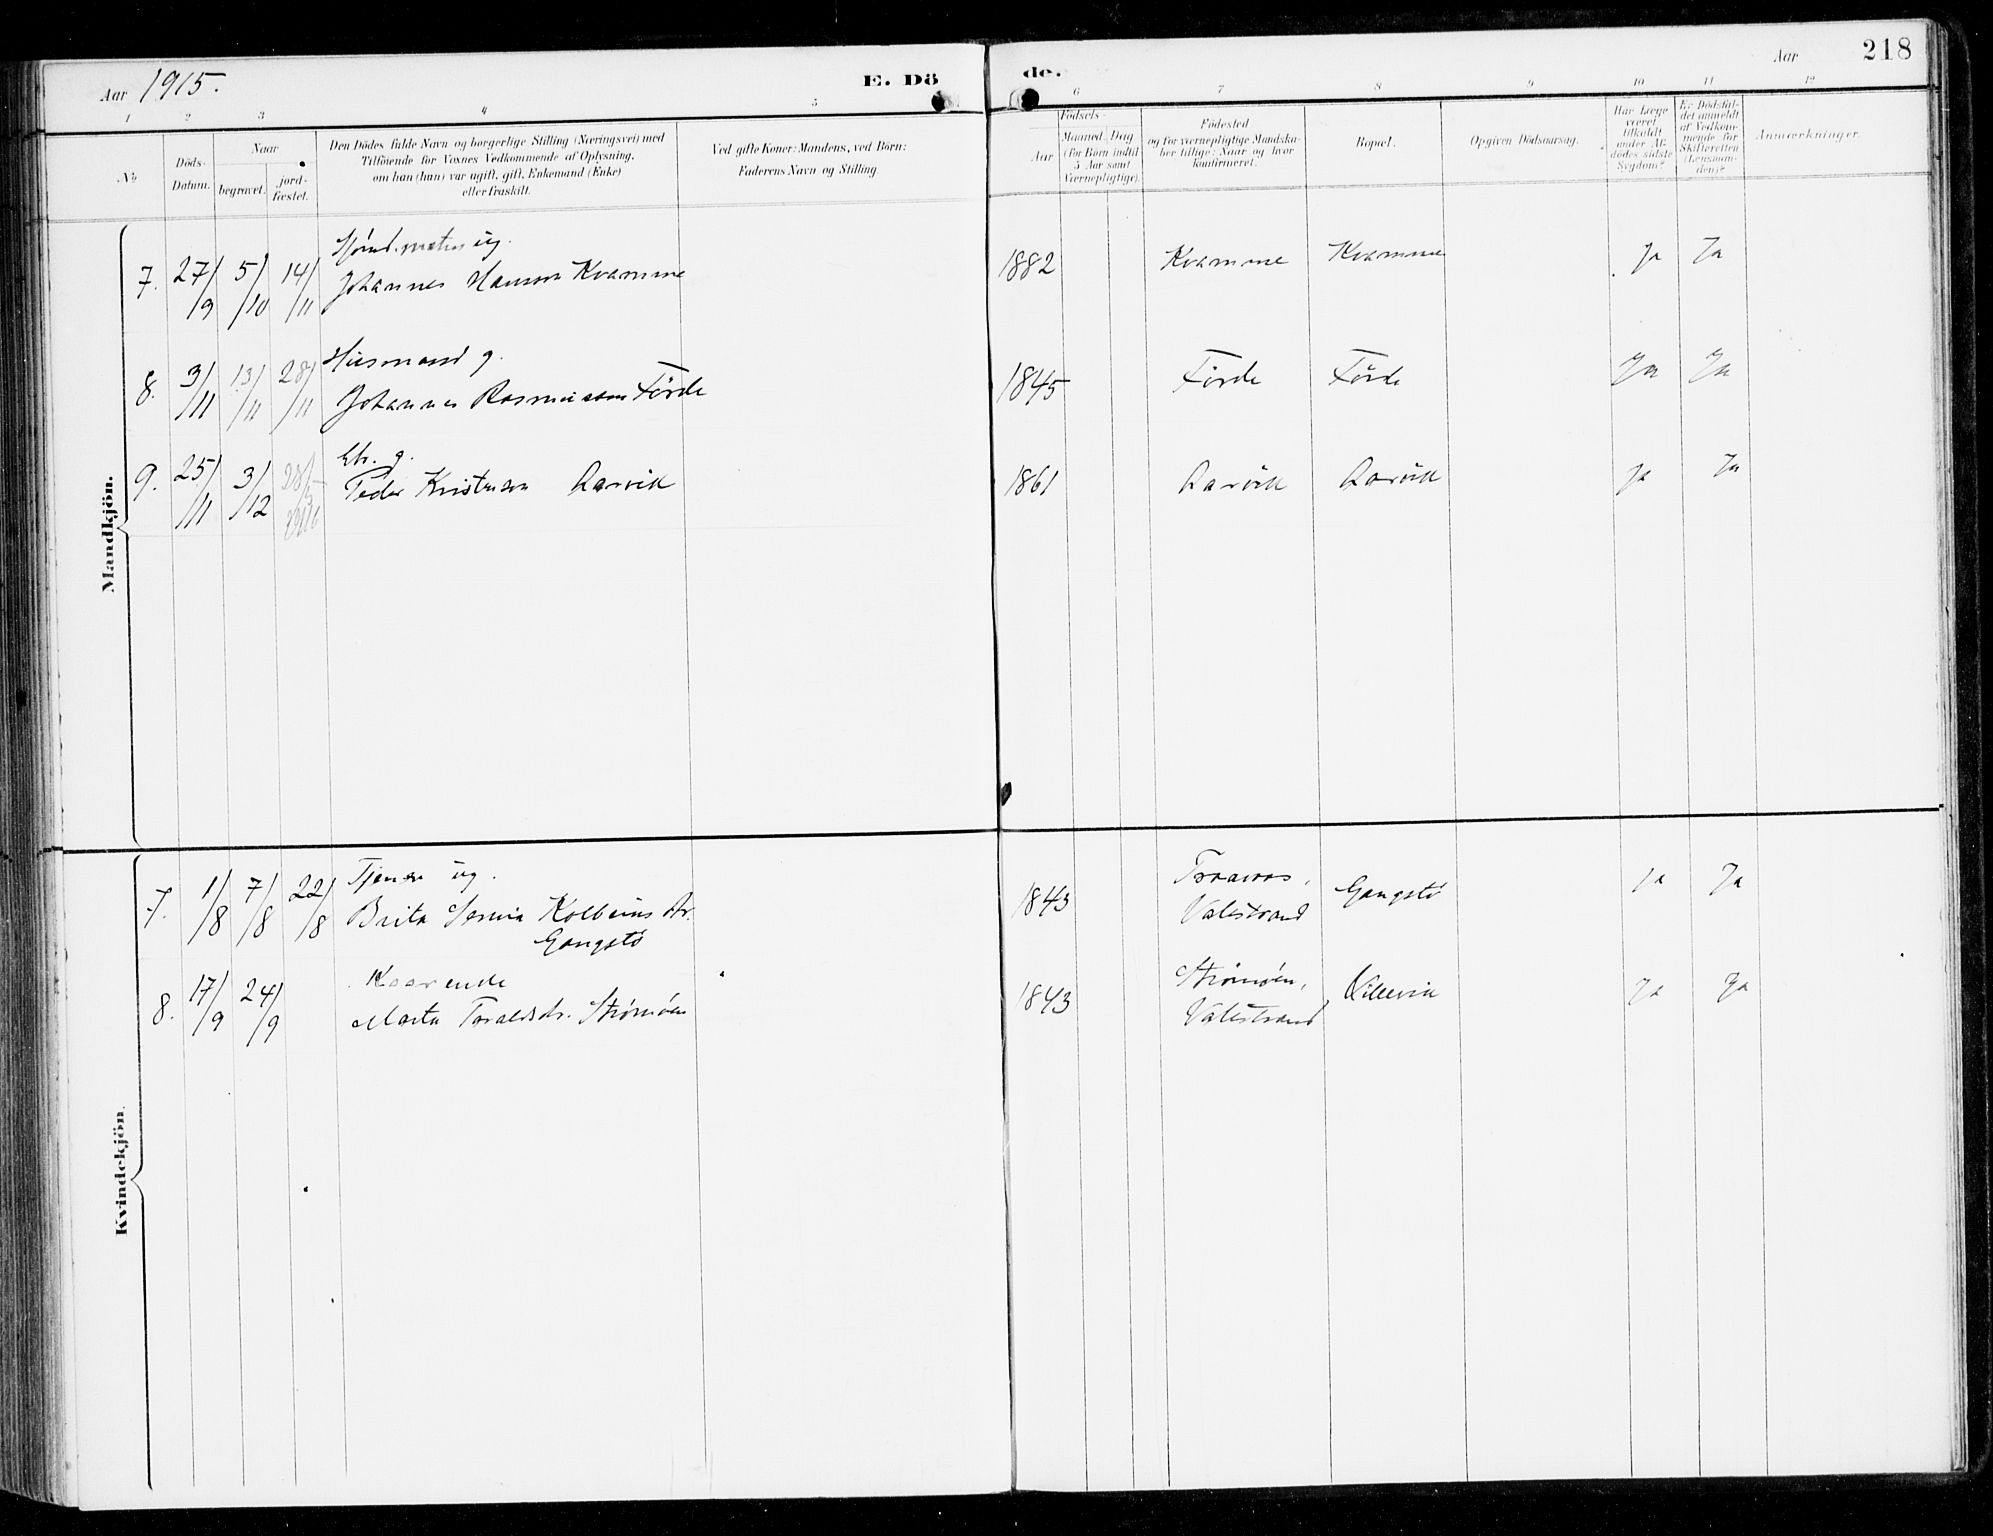 Aar 1915.
E. Dö
de.
Aar
218
1 2 3 4 5 6 7 8 9 10 11 12
No
Döds-
Datum.
Naar
begravet.
jord-
fæstet.
Den Dödes fulde Navn og borgerlige Stilling (Næringsvei) med
Tilföiende for Voxnes Vedkommende af Oplysning,
om han (hun) var ugift, gift, Enkemand (Enke)
eller fraskilt.
Ved gifte Koner: Mandens, ved Börn:
Faderens Navn og Stilling.
Födsels-
Aar
Maaned. Dag
(for Börn indtil
5 Aar samt
Værnepligtige).
Födested
og for værnepligtige Mandska-
ber tillige: Naar og hvor
konfirmeret.
Bopæl.
Opgiven Dödsaarsag.
Har Læge
været
tilkaldt
under Af-
dödes sidste
Sygdom?
Er Dödsfal-
det anmeldt
af Vedkom-
mende for
Skifteretten
(Lensman-
den)?
Anmærkninger.
Mandkjön.
ug.
7. 27/9 5/10 14/11 Johannes Hanson Kvamme 1882 Kvamme Kvamme Ja Ja
Husmand g.
8. 3/11 13/11 28/11 Johannes Rasmusson Förde 1845 Förde Förde Ja Ja
g.
9. 25/11 3/12 Peder Kristenson 1861 Ja Ja
Kvindekjön.
Tjener ug. Traavaas,
7. 1/8 7/8 22/8 Brita Kolbeins dr. 1843 Valestrand Gangstö Ja Ja
Gangstö
Kaarende Strömöen,
8. 17/9 24/9 Marta Taraldsdr. Strömöen 1843 Valestrand Ja Ja